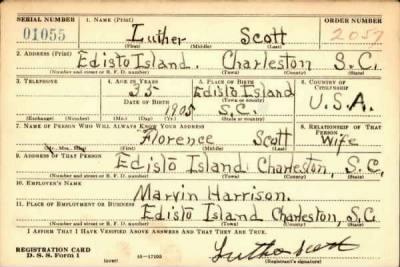 SERIAL NUMBER 1. NAME (Print) ORDER NUMBER
01055 Luther Scott 2057
(First) (Middle) (Last)
2. ADDRESS (Print)
Edisto Island. Charleston S.C.
(Number and street or R. F. D. number) (Town) (County) (State)
3. TELEPHONE 4. AGE IN YEARS 5. PLACE OF BIRTH 6. COUNTRY OF CITIZENSHIP
35 Edisto Island
DATE OF BIRTH (Town or county)
1905 S.C. U.S.A.
(Exchange) (Number) (Mo.) (Day) (Yr.) (State or country)
7. NAME OF PERSON WHO WILL ALWAYS KNOW YOUR ADDRESS 8. RELATIONSHIP OF THAT PERSON
Florence Scott Wife
(Mr., Mrs., Miss) (First) (Middle) (Last)
9. ADDRESS OF THAT PERSON
Edisto Island Charleston, S.C.
(Number and street or R. F. D. number) (Town) (County) (State)
10. EMPLOYER'S NAME
Marvin Harrison.
11. PLACE OF EMPLOYMENT OR BUSINESS
Edisto Island Charleston, S.C.
(Number and street or R. F. D. number) (Town) (County) (State)
I AFFIRM THAT I HAVE VERIFIED ABOVE ANSWERS AND THAT THEY ARE TRUE.
REGISTRATION CARD
D. S. S. Form 1 (over) 16—17105 Luther Scott
(Registrant's signature)